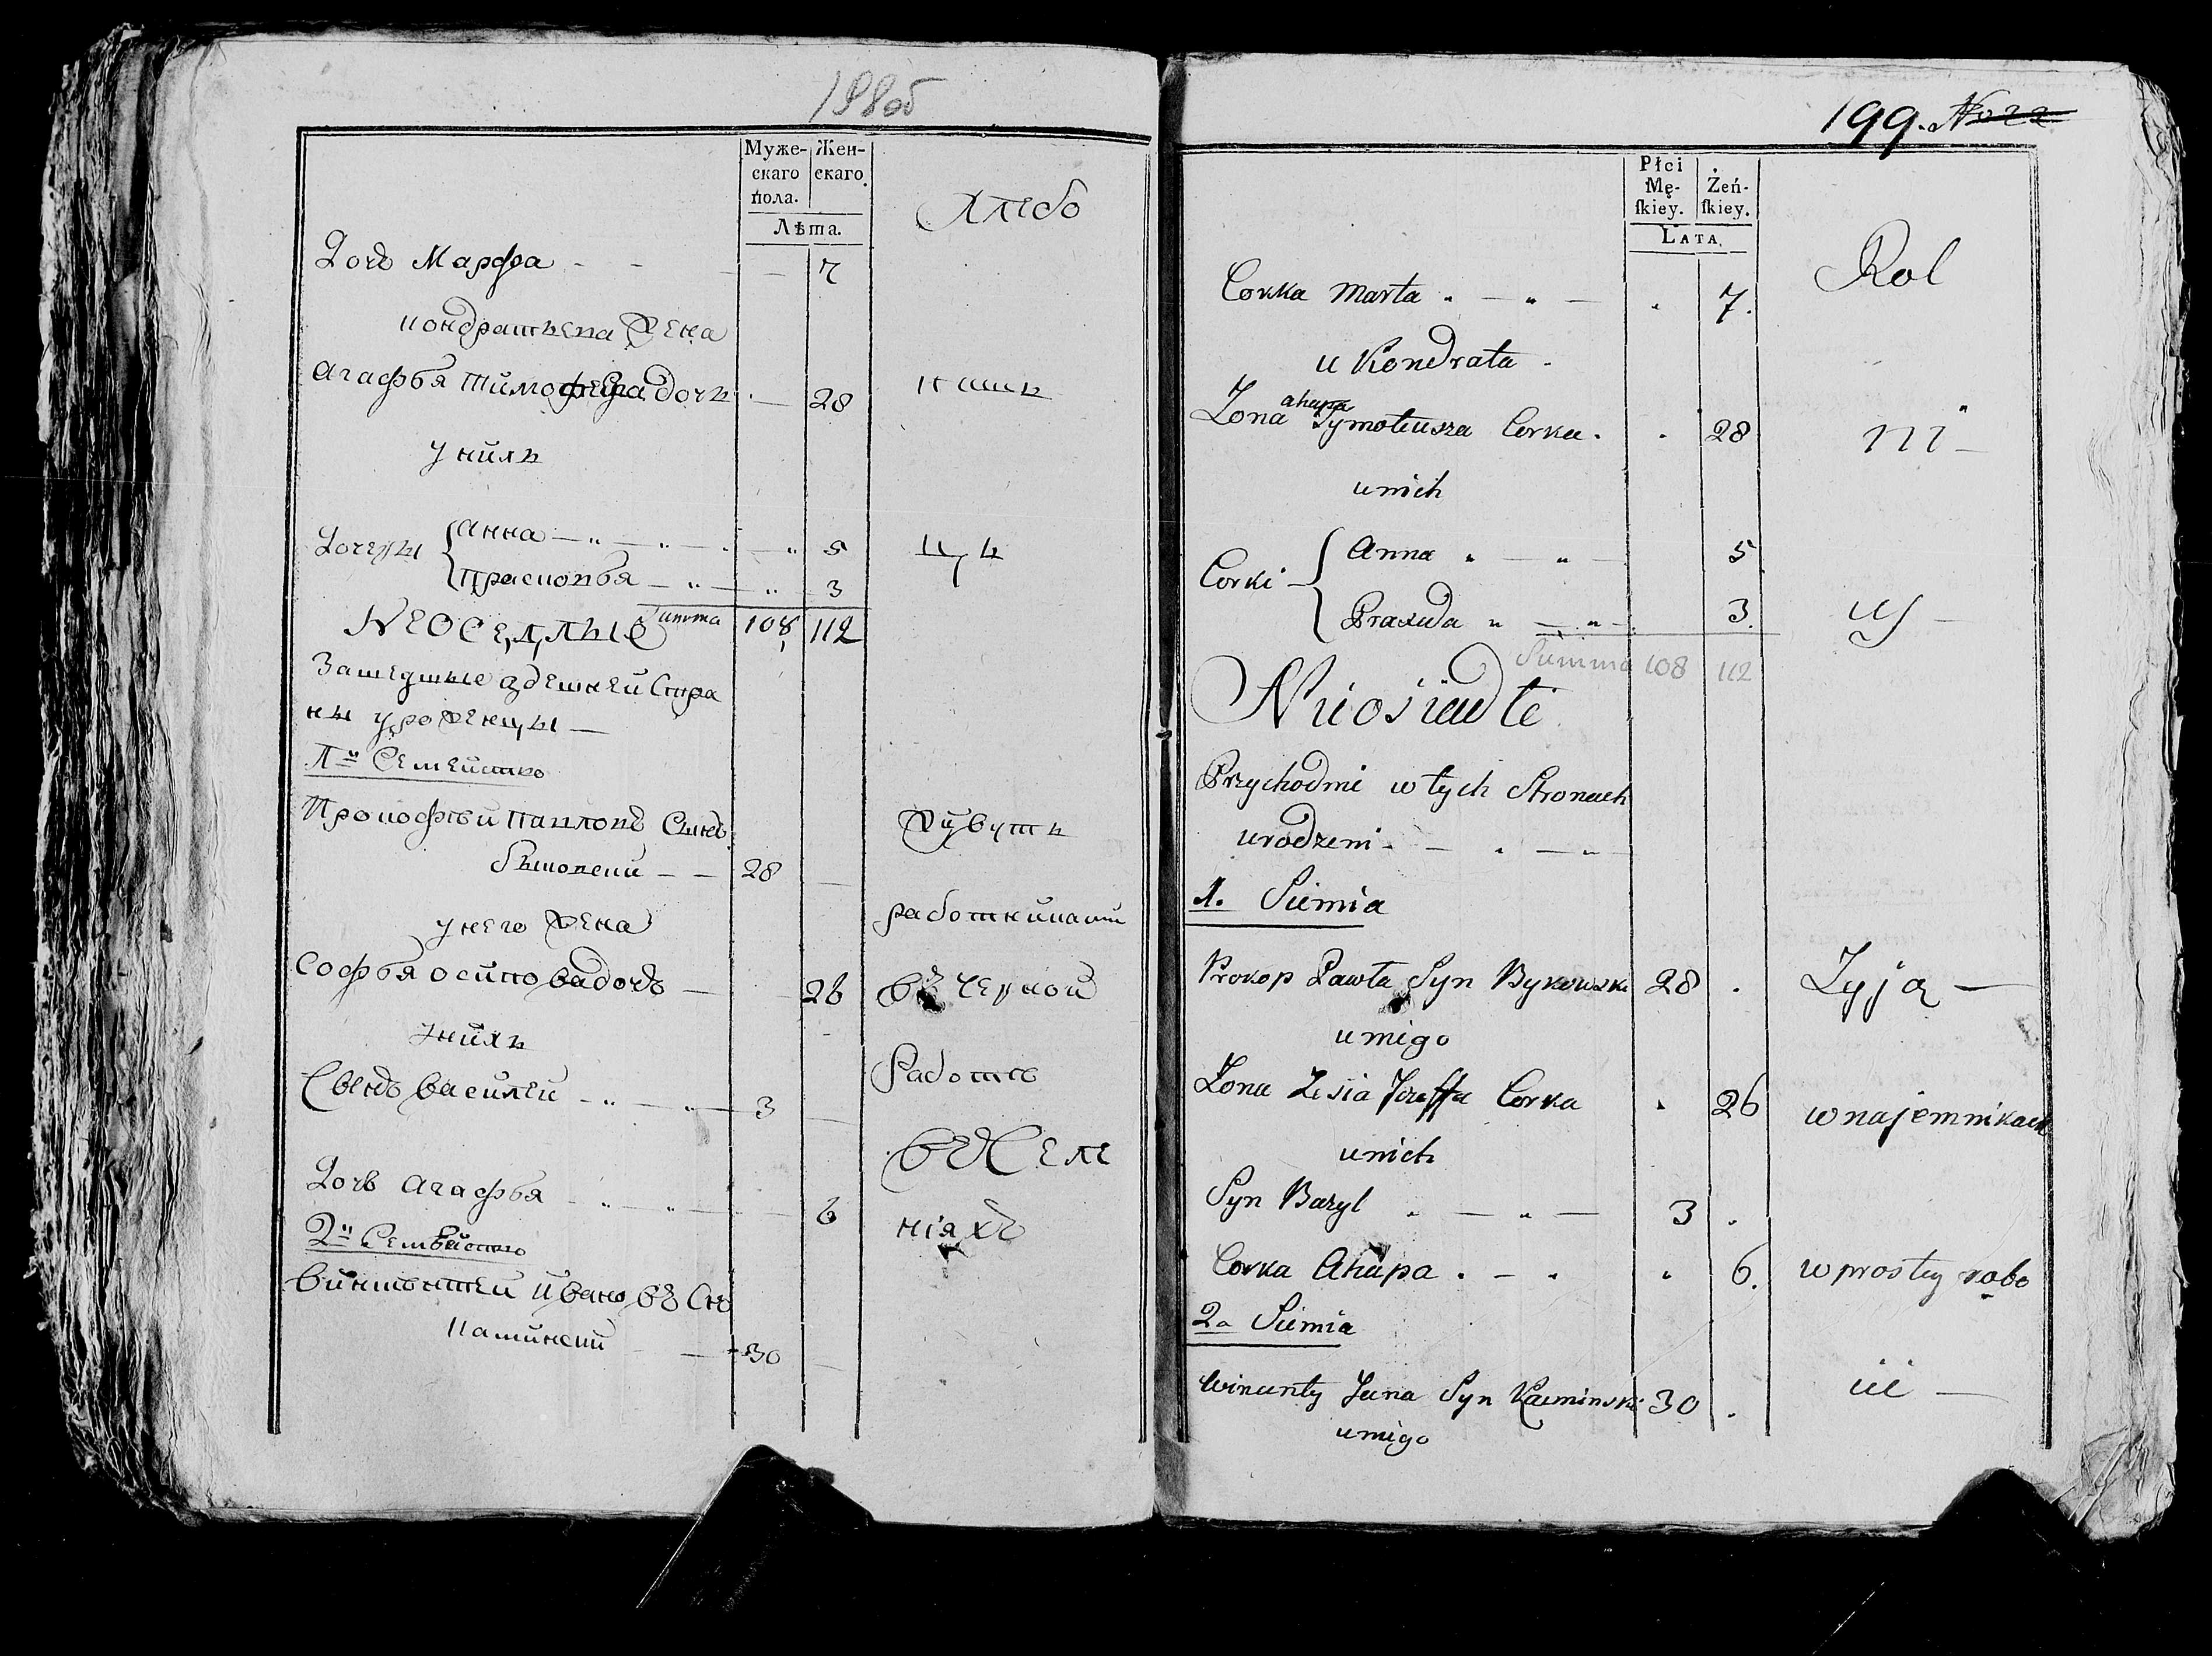 198об
Муже-
скаго
пола.
Жен-
скаго.
Лѣта.
Хлебо
Дочь Марфа - - - — 7
кондратьева жена
агафья тимофеева дочь . — 28
пашь
унихъ
Дочери
анна — " — " — " 5
прасковья — " — " 3
цы
Summa 108 112
НЕОСЕДЛЫЕ
Зашедшые здешней Стра
ны уроженцы —
1й Семейство
Прокофей павловъ Сынъ
быковски — — 28 —
живутъ
унего жена
работниками
Софья осиповадочь — 26
въ черной
унихъ
Сынъ василей - " — " — 3 —
Работе
въ селе
Дочь агафья - " - " — 6
ніяхъ
2й Семейство
винцентей ивановъ Сн
каминский - — 30 —
199. No 22
Płci
Mę-
ſkiey.
Żeń-
ſkiey.
LATA.
Rol
Corka Marta " — " — " 7.
u Kondrata -
Zona ahapa Tymoteusza Corka . . 28
ni —
unich
Corki
Anna " — " — 5
Praxeda " — " — 3.
cy —
Summa 108 112
Nieosiadłe
Przychodnie w tych Stronach
urodzeni - — " — "
1. Siemia
Prokop Pawła Syn Bykowski 28 .
Zyją —
u niego
Zona Zosia Jozeffa Corka . 26
w najemnikach
unich
Syn Bazyl " — " — 3 .
Corka Ahapa . — " " 6.
w prostey robo
2a Siemia
Wincenty Jana Syn Kaminski 30 .
cie —
u niego